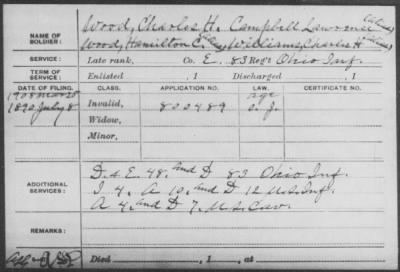 NAME OF SOLDIER: Wood, Charles H. Campbell Lawrence (alias)
Wood, Hamilton C. (alias) Williams, Charles H. (alias)
SERVICE: Late rank, Co. E. 83 Reg't Ohio Inf.
TERM OF SERVICE: Enlisted , 1 Discharged , 1
DATE OF FILING. CLASS. APPLICATION NO. LAW. CERTIFICATE NO.
1908 Mar 25 age
1890 July 8 Invalid, 800489 O. J.
Widow,
Minor,
ADDITIONAL SERVICES: D. & E. 48. and D 83 Ohio Inf.
I 4. A 10. and D 12 U.S. Inf.
A 4. and D 7. U.S. Cav.
REMARKS:
Died , 1 , at